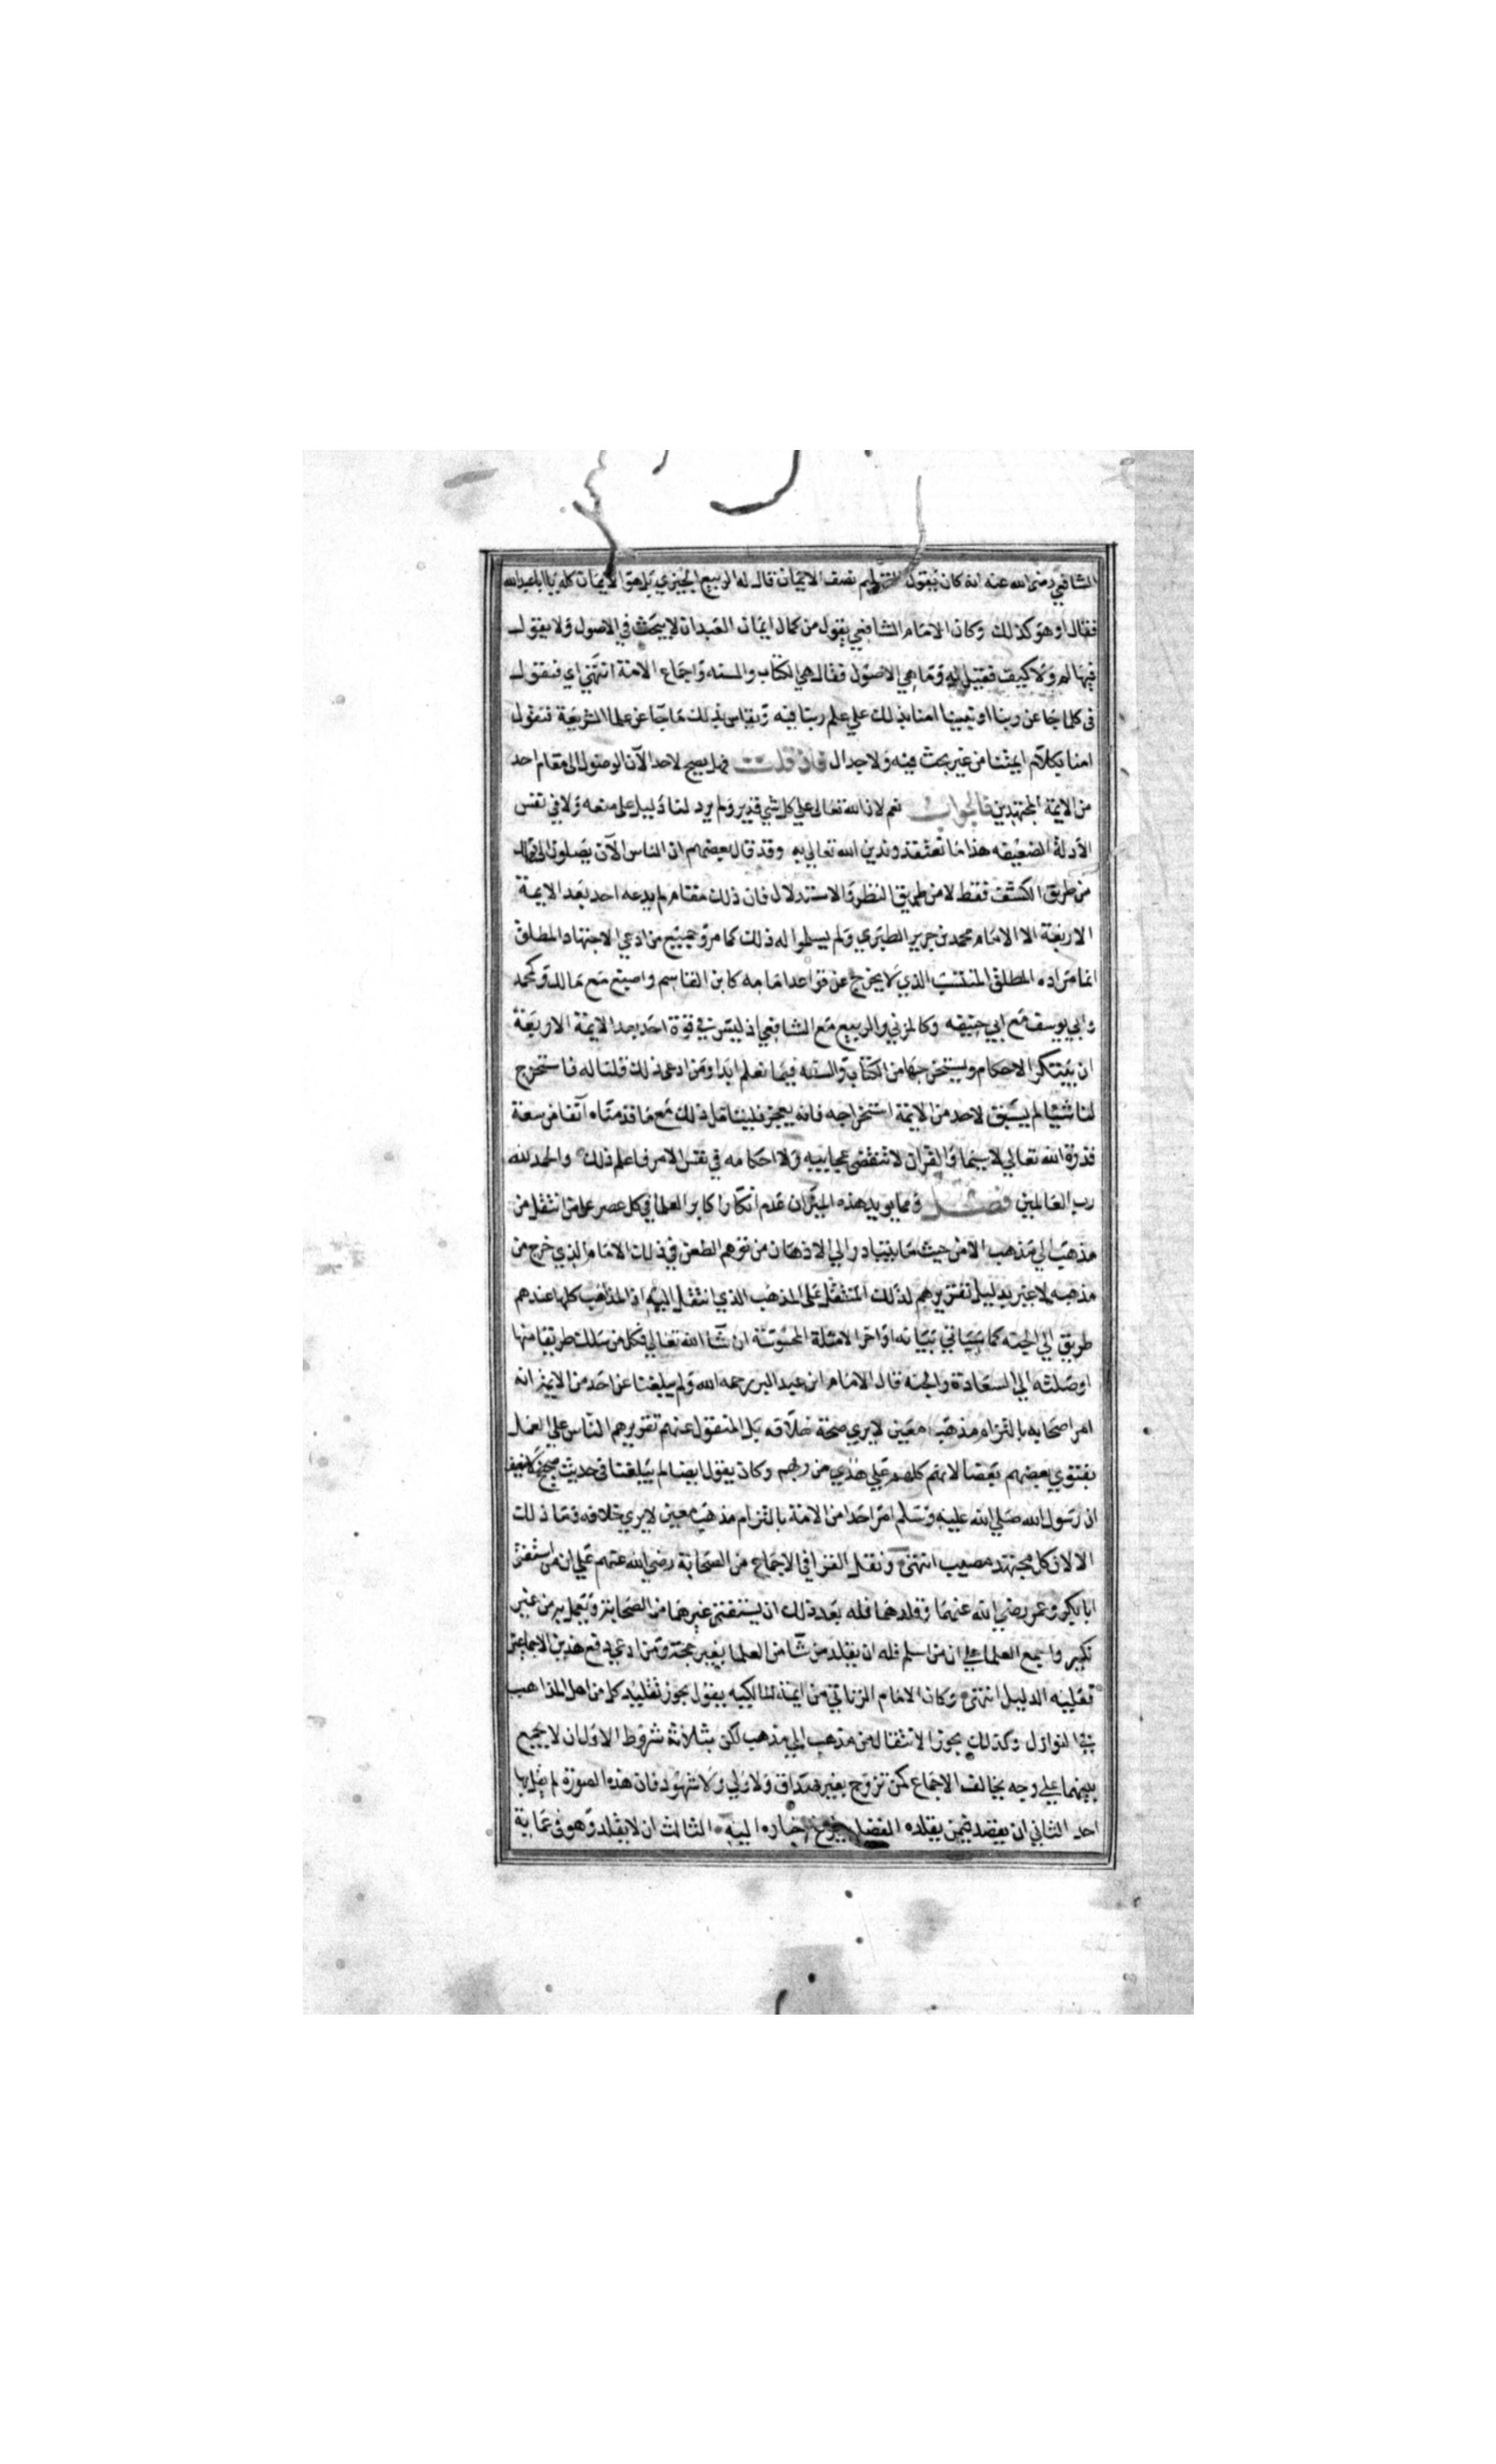 الشافعي رضي الله عنه انه كان يقول التسليم نصف الايمان قال له الربيع الجيزي بل هو الايمان كله يا ابا عبدالله
فقال او هو كذلك وكان الامام الشافعي يقول من كمال ايمان العبد ان لا يبحث في الاصول ولا يقول
فيها لم ولا كيف فقيل له وما هي الاصول فقال هي الكتاب والسنه واجماع الامة انتهي اي فنقول
في كلما جا عن ربنا او نبينا امنا بذلك علي علم ربنا فيه ويقاس بذلك ما جا عن علما الشريعة فنقول
امنا بكلام ايمتنا من غير بحث فيه ولا جدال فان قلت فهل يصح لاحد الآن الوصول الى مقام احد
من الايمة المجتهدين فالجواب نعم لان الله تعالى علي كل شي قدير ولم يرد لنا دليل على منعه ولا في نفس
الادلة الضعيفه هذا ما نعتقده وندين الله تعالي به وقد قال بعضهم ان الناس الآن يصلون الى ذلك
من طريق الكشف فقط لا من طريق النظر والاستدلال فان ذلك مقام لم يدعه احد بعد الايمة
الاربعة الا الامام محمد بن جرير الطبري ولم يسلموا له ذلك كما مر وجميع من ادعي الاجتهاد المطلق
انما مراده المطلق المنتسب الذي لا يخرج عن قواعد امامه كابن القاسم واصبغ مع مالك وكمحمد
وابي يوسف مع ابي حنيفه وكالمزني والربيع مع الشافعي اذ ليس في قوة احد بعد الايمة الاربعة
ان يبتكر الاحكام ويستخرجها من الكتاب والسنه فيما نعلم ابدا ومن ادعى ذلك قلنا له فاستخرج
لنا شيئا لم يسبق لاحد من الايمة استخراجه فانه يعجز فليتامل ذلك مع ما قدمناه آنفا من سعة
قدرة الله تعالي لا سيما والقران لا تنقضي عجايبه ولا احكامه في نفس الامر فاعلم ذلك والحمد لله
رب العالمين فصل ومما يويد هذه الميزان عدم انكار اكابر العلما في كل عصر على من انتقل من
مذهب الي مذهب الا من حيث ما يتبادر الي الاذهان من توهم الطعن في ذلك الامام الذي خرج من
مذهبه لا غير بدليل تقريرهم لذلك المنتقل على المذهب الذي انتقل اليه اذ المذاهب كلها عندهم
طريق الي الجنه كما سياتي بيانه اواخر الامثلة المحسوسة ان شا الله تعالي فكل من سلك طريقا منها
اوصلته الي السعادة والجنه قال الامام ابن عبد البر رحمه الله ولم يبلغنا عن احد من الايمة انه
امر اصحابه بالتزام مذهب معين لا يري صحة خلافه بل المنقول عنهم تقريرهم الناس علي العمل
بفتوي بعضهم بعضا لانهم كلهم علي هدي من ربهم وكان يقول ايضا لم يبلغنا في حديث صحيح ولا ضعيف
ان رسول الله صلي الله عليه وسلم امر احدا من الامة بالتزام مذهب معين لا يري خلافه وما ذلك
الا لان كل مجتهد مصيب انتهى ونقل القرافي الاجماع من الصحابة رضي الله عنهم علي ان من استفتى
ابا بكر وعمر رضي الله عنهما وقلدهما فله بعد ذلك ان يستفتي غيرهما من الصحابة ويعمل به من غير
نكير واجمع العلما علي ان من اسلم فله ان يقلد من شا من العلما بغير حجة ومن ادعي دفع هذين الاجماعين
فعليه الدليل انتهى وكان الامام الزناتي من ايمة المالكيه يقول يجوز تقليد كل من اهل المذاهب
في النوازل وكذلك يجوز الانتقال من مذهب الي مذهب لكن بثلاثة شروط الاول ان لا يجمع
بينهما علي وجه يخالف الاجماع كمن تزوج بغير صداق ولا ولي ولا شهود فان هذه الصورة لم يقل بها
احد الثاني ان يعتقد فيمن يقلده الفضل اخباره اليه الثالث ان لا يقلد وهو في عماية